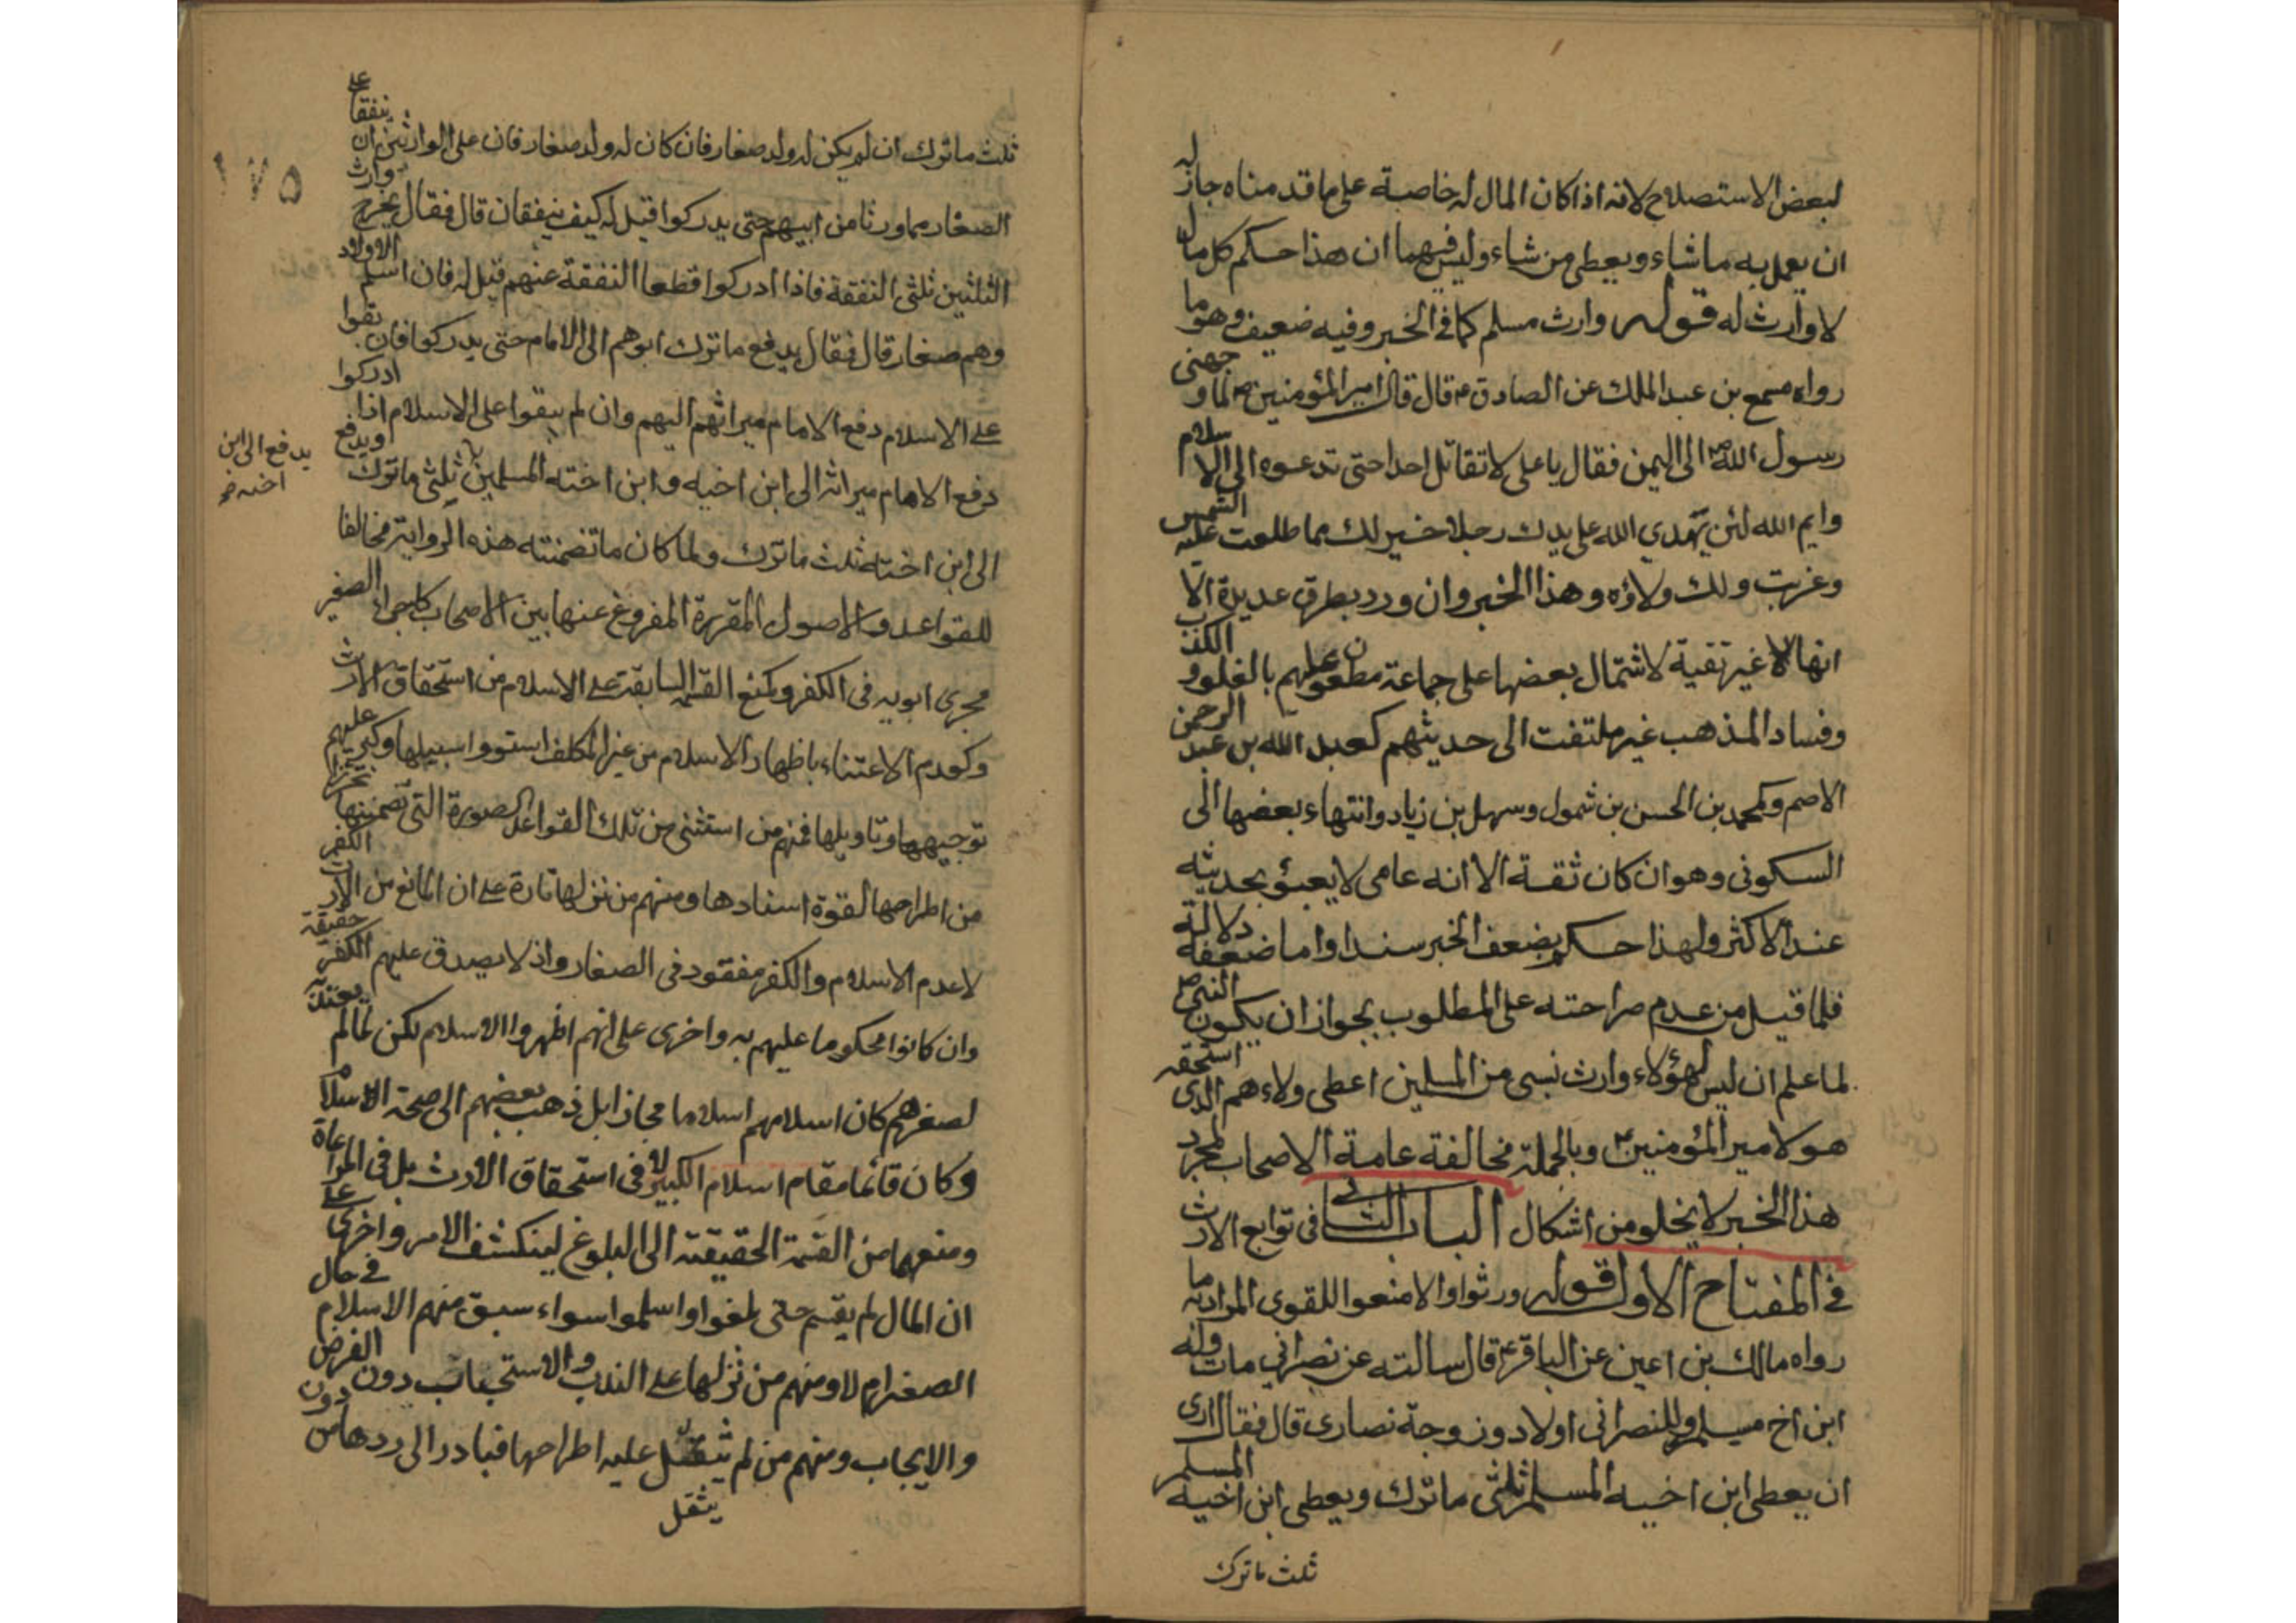 لبعض الاستصلاح لانه اذا كان المال له خاصة على ما قدمناه جاز له
ان يعمل به ما شاء ويعطى من شاء وليس فيهما ان هذا حكم كل مال
لا وارث له قوله وارث مسلم كما فى الخبر وفيه ضعيف وهو ما
رواه مسمع بن عبد الملك عن الصادق ع قال قال امير المؤمنين ع لما وجهنى
رسول الله ص الى اليمن فقال يا على لا تقاتل احدا حتى تدعوه الى الاسلام
وايم الله لئن يهدي الله على يدك رجلا خير لك مما طلعت عليه الشمس
وغربت ولك ولاؤه وهذا الخبر وان ورد بطرق عديدة الا
انها لاغير نقية لاشتمال بعضها على جماعة مطعون عليهم بالغلو والكذب
وفساد المذهب غير ملتفت الى حديثهم كعبد الله بن عبد الرحمن
الاصم وكمحمد بن الحسن بن شمول وسهل بن زياد وانتهاء بعضها الى
السكونى وهو ان كان ثقة الا انه عامى لا يعبؤ بحديثه
عند الاكثر ولهذا حكم بضعف الخبر سندا واما ضعفه دلالة
فلما قيل من عدم صراحته على المطلوب بجواز ان يكون النبى ص
لما علم ان ليس لهؤلاء وارث نسبى من المسلمين اعطى ولاءهم الذى استحقه
هو لامير المؤمنين ع وبالجملة مخالفة عامة الاصحاب لمجرد
هذا الخبر لا يخلو من اشكال الباب الثانى فى توابع الارث
فى المفتاح الاول قوله ورثوا والا منعوا اللقوى المراد به ما
رواه مالك بن اعين عن الباقر ع قال سالته عن نصرانى مات وله
ابن اخ مسلم وللنصرانى اولاد وزوجة نصارى قال فقال ارى
ان يعطى ابن اخيه المسلم ثلثى ما ترك ويعطى ابن اخيه المسلم
ثلث ما ترك
١٧٥
ثلث ما ترك ان لم يكن له ولد صغار فان كان له ولد صغار فان على الوارثين ان ينفقا على
الصغار مما ورثا من ابيهم حتى يدركوا قيل له كيف ينفقان قال فقال يخرج وارث
الثلثين ثلثى النفقة فاذا ادركوا قطعا النفقة عنهم قيل له فان اسلم الاولاد
وهم صغار قال فقال يدفع ما ترك ابوهم الى الامام حتى يدركوا فان بقوا
على الاسلام دفع الامام ميراثهم اليهم وان لم يبقوا على الاسلام اذا ادركوا
دفع الامام ميراثه الى ابن اخيه وابن اخته المسلمين ثلثى ما ترك ويدفع
يدفع الى ابن
اخيه
الى ابن اخته ثلث ما ترك ولما كان ما تضمنته هذه الرواية مخالفا
للقواعد والاصول المقررة المفروغ عنها بين الاصحاب كاجراء الصغير
مجرى ابويه فى الكفر وكمنع القسمة السابقة على الاسلام من استحقاق الارث
وكعدم الاعتناء باظهار الاسلام من غير المكلف استووا سبيلها وكبر عليهم
توجيهها وتاويلها فمنهم من استثنى من تلك القواعد الصورة التى تضمنتها تحرزا
من اطراحها لقوة اسنادها ومنهم من نزلها تارة على ان المانع من الارث الكفر
لا عدم الاسلام والكفر مفقود فى الصغار واذ لا يصدق عليهم الكفر حقيقة
وان كانوا محكوما عليهم به واخرى على انهم اظهروا الاسلام لكن لما لم يعتد به
لصغرهم كان اسلامهم اسلاما مجازا بل ذهب بعضهم الى صحة الاسلام
وكان قائما مقام اسلام الكبير لا فى استحقاق الارث بل فى المراعاة
ومنعهما من القسمة الحقيقة الى البلوغ لينكشف الامر واخرى على
ان المال لم يقسم حتى بلغوا واسلموا سواء سبق منهم الاسلام فى حال
الصغر ام لا ومنهم من نزلها على الندب والاستحباب دون الفرض
والايجاب ومنهم من لم يثقل عليه اطراحها فبادر الى ردها من دون
يثقل